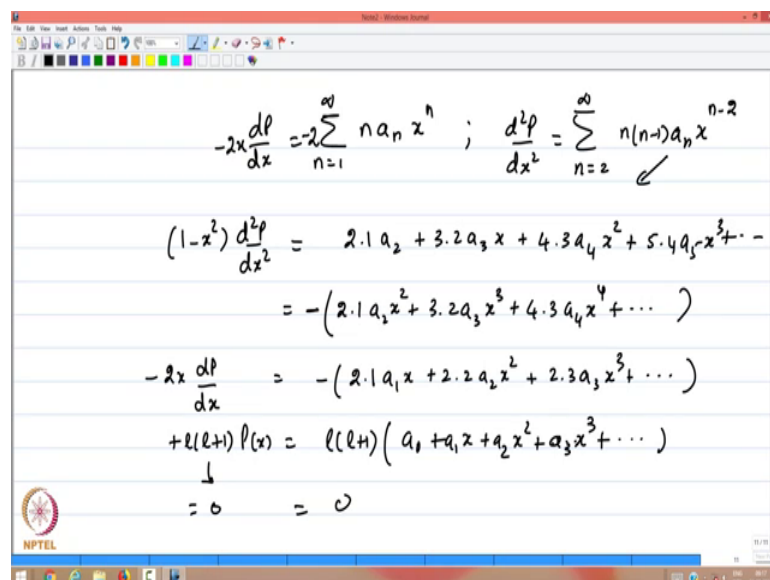 Note2 - Windows Journal
File Edit View Insert Actions Tools Help
-2x dP/dx = -2 ∑_{n=1}^{∞} n a_n x^n ; d²P/dx² = ∑_{n=2}^{∞} n(n-1) a_n x^{n-2}
(1-x²) d²P/dx² = 2.1 a₂ + 3.2 a₃ x + 4.3 a₄ x² + 5.4 a₅ x³ + ...
= -(2.1 a₂ x² + 3.2 a₃ x³ + 4.3 a₄ x⁴ + ... )
-2x dP/dx = -(2.1 a₁ x + 2.2 a₂ x² + 2.3 a₃ x³ + ... )
+l(l+1) P(x) = l(l+1) ( a₀ + a₁ x + a₂ x² + a₃ x³ + ... )
↓
= 0 = 0
NPTEL
11/11